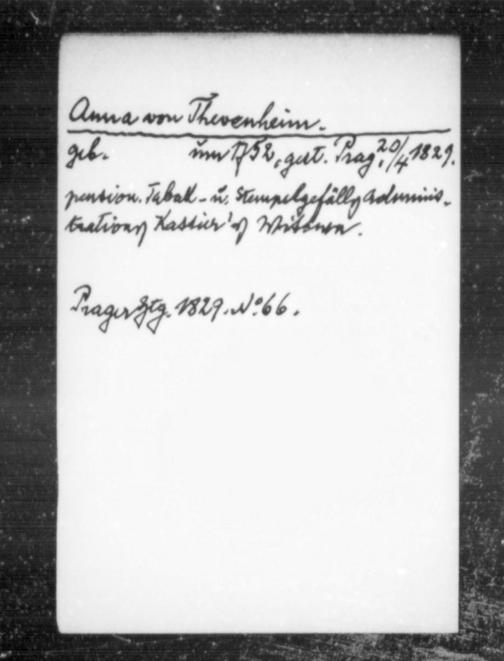 Anna von Thevenheim.
geb. um 1752, gest. Prag 20/4 1829.
pension. Tabak- u. Stempelgefälls Adminis-
trations Kassier's Witwe.
Prager Ztg. 1829. No. 66.